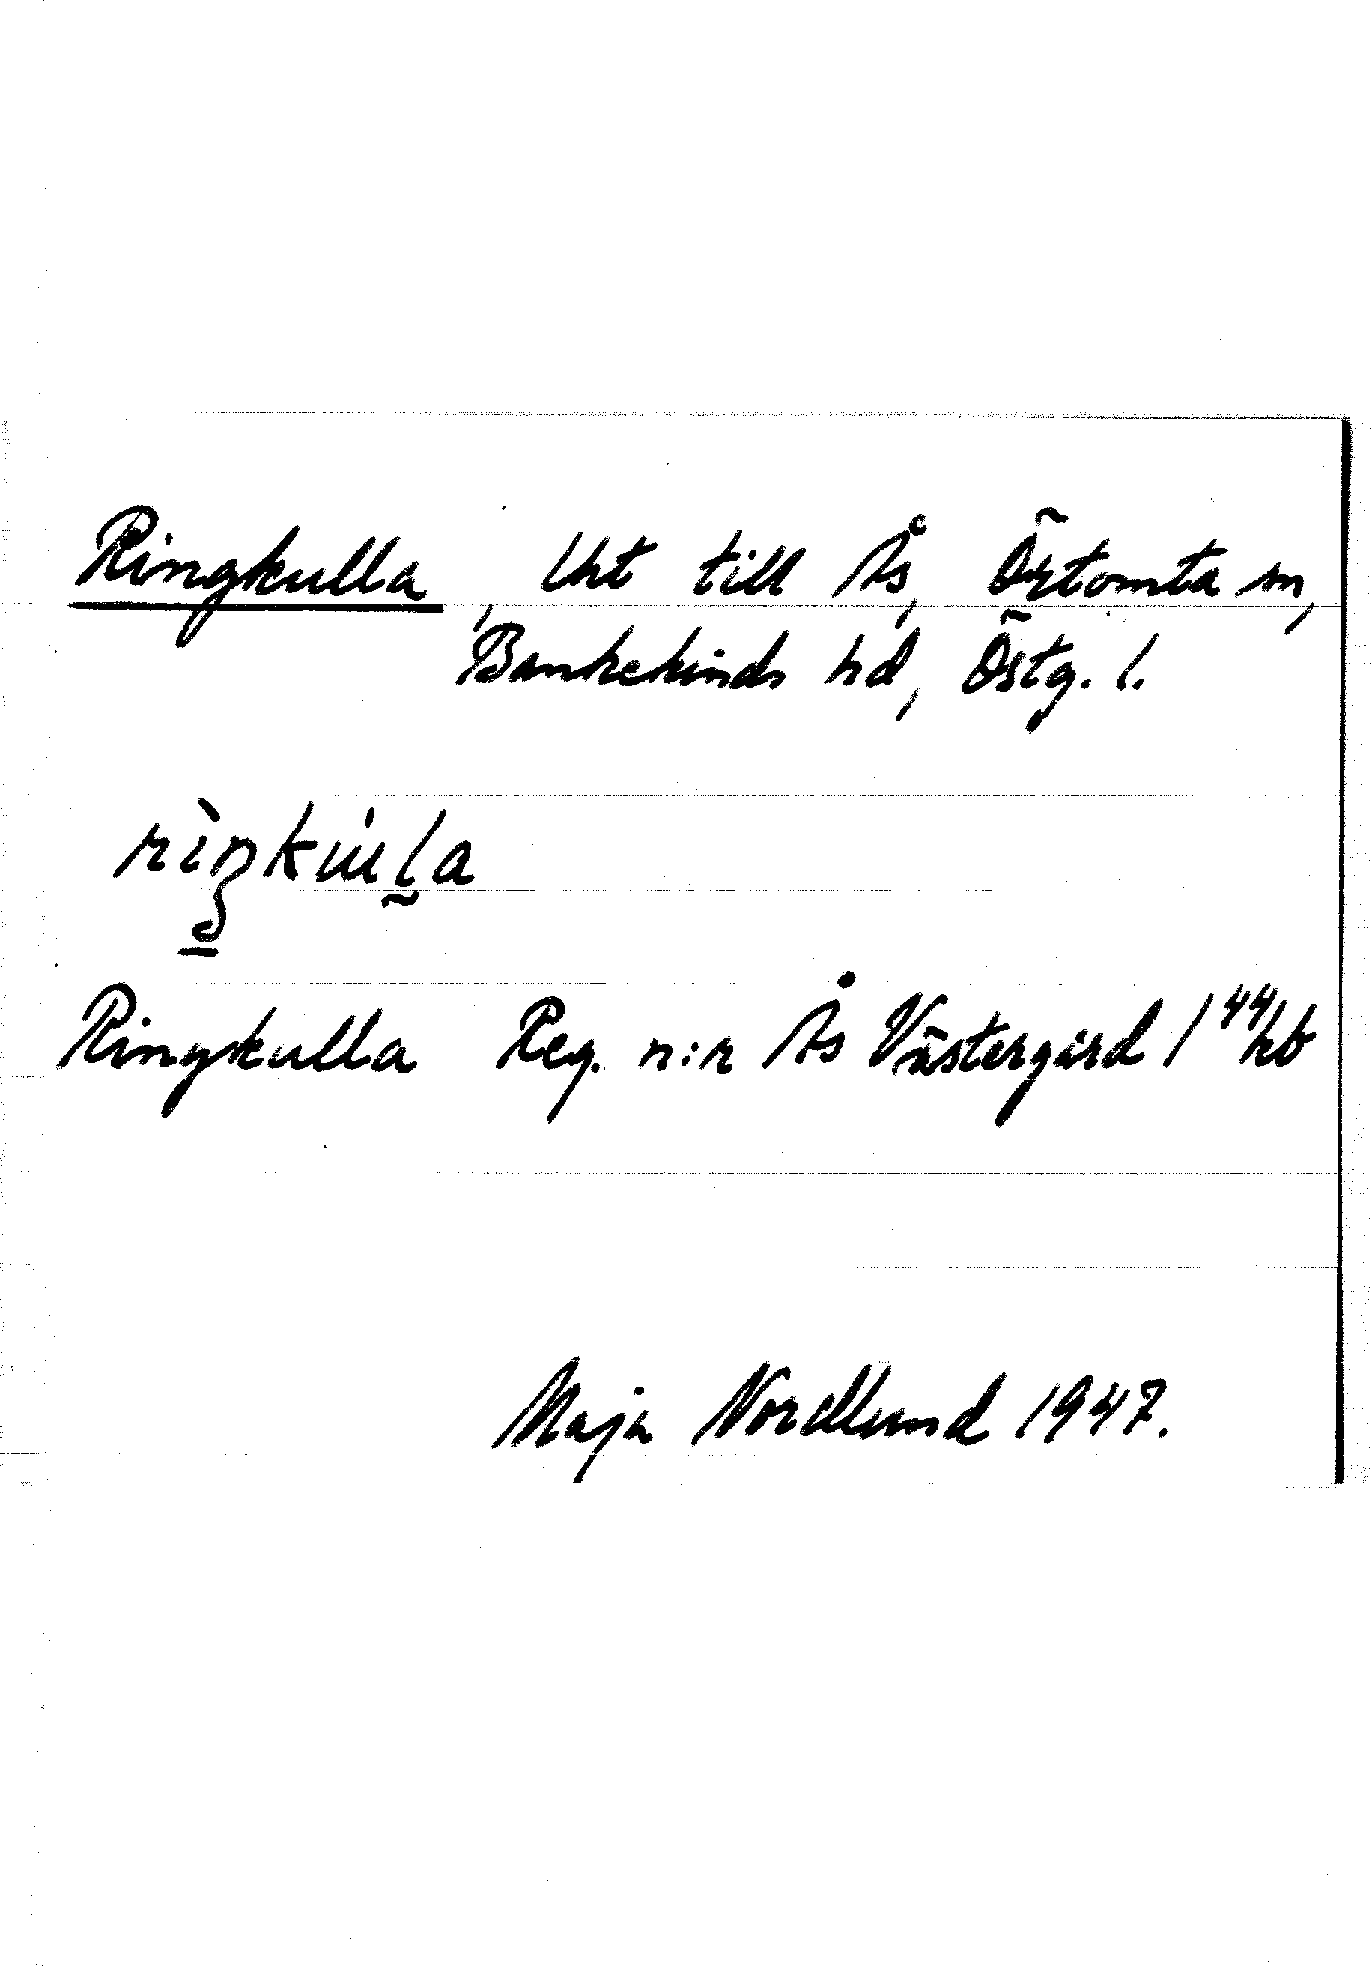 Ringkulla, Uht till Ås, Örtomta sn,
Bankekinds hd, Östg. l.
Ringkulla Reg. n:r Ås Västergård 1⁴⁴ hb
Maja Nordlund 1947.